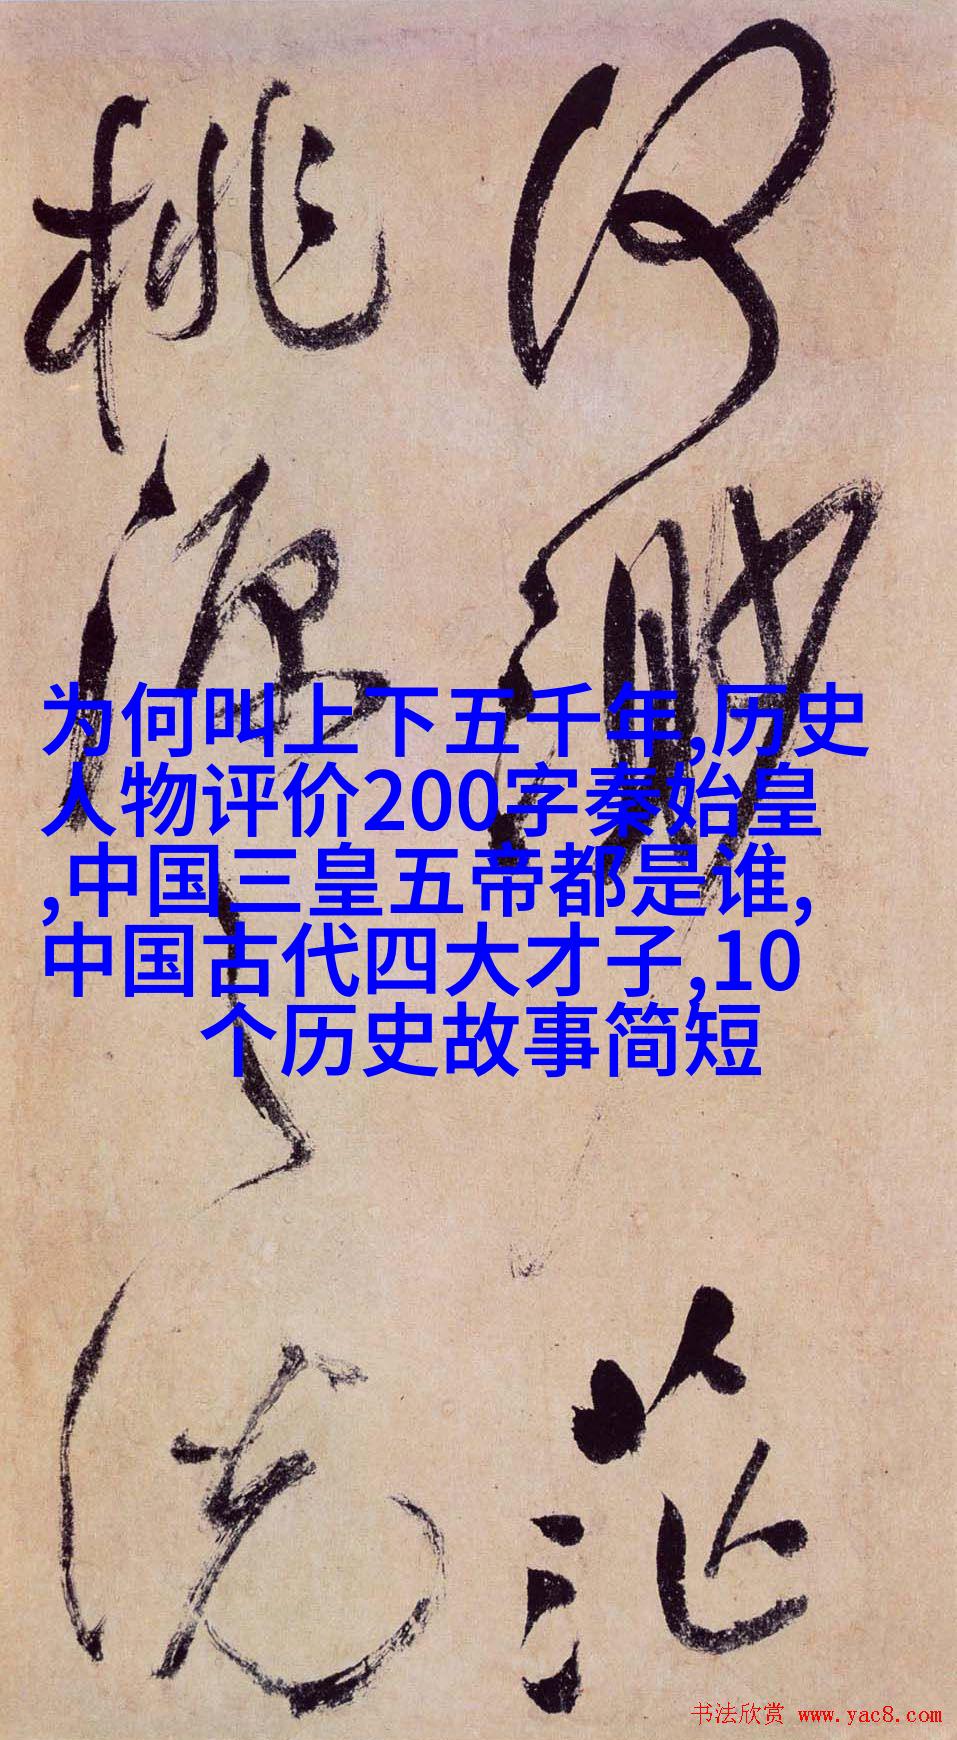 何渺茫
桃源之说
为何叫上下五千年,历史
人物评价200字秦始皇
,中国三皇五帝都是谁,
中国古代四大才子,10
个历史故事简短
书法欣赏 www.yac8.com